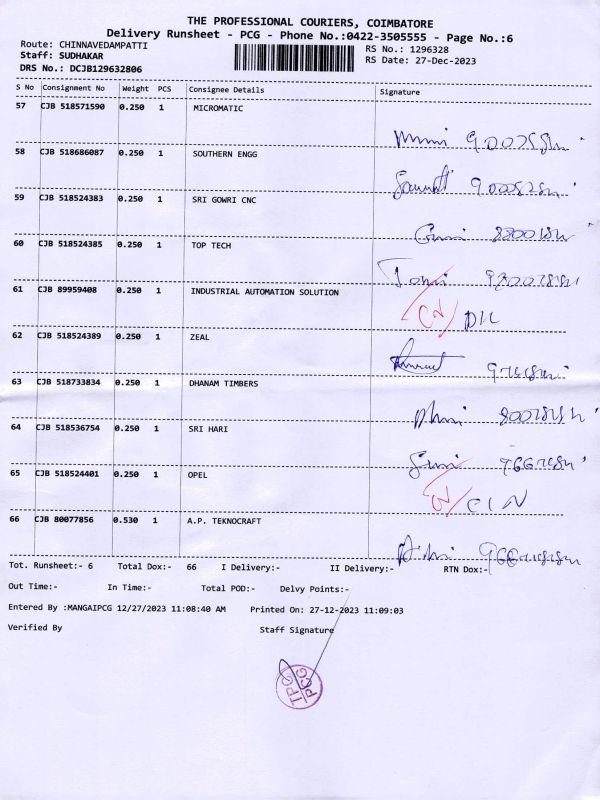 THE PROFESSIONAL COURIERS, COIMBATORE
Delivery Runsheet - PCG - Phone No.:0422-3505555 - Page No.:6
Route: CHINNAVEDAMPATTI
RS No.: 1296328
Staff: SUDHAKAR
RS Date: 27-Dec-2023
DRS No.: DCJB129632806
S No Consignment No Weight PCS Consignee Details Signature
57 CJB 518571590 0.250 1 MICROMATIC
58 CJB 518686087 0.250 1 SOUTHERN ENGG
59 CJB 518524383 0.250 1 SRI GOWRI CNC
60 CJB 518524385 0.250 1 TOP TECH
61 CJB 89959408 0.250 1 INDUSTRIAL AUTOMATION SOLUTION
62 CJB 518524389 0.250 1 ZEAL
63 CJB 518733834 0.250 1 DHANAM TIMBERS
64 CJB 518536754 0.250 1 SRI HARI
65 CJB 518524401 0.250 1 OPEL
66 CJB 80077856 0.530 1 A.P. TEKNOCRAFT
Tot. Runsheet:- 6 Total Dox:- 66 I Delivery:- II Delivery:- RTN Dox:-
Out Time:- In Time:- Total POD:- Delvy Points:-
Entered By :MANGAIPCG 12/27/2023 11:08:40 AM Printed On: 27-12-2023 11:09:03
Verified By Staff Signature
TPC
PCG